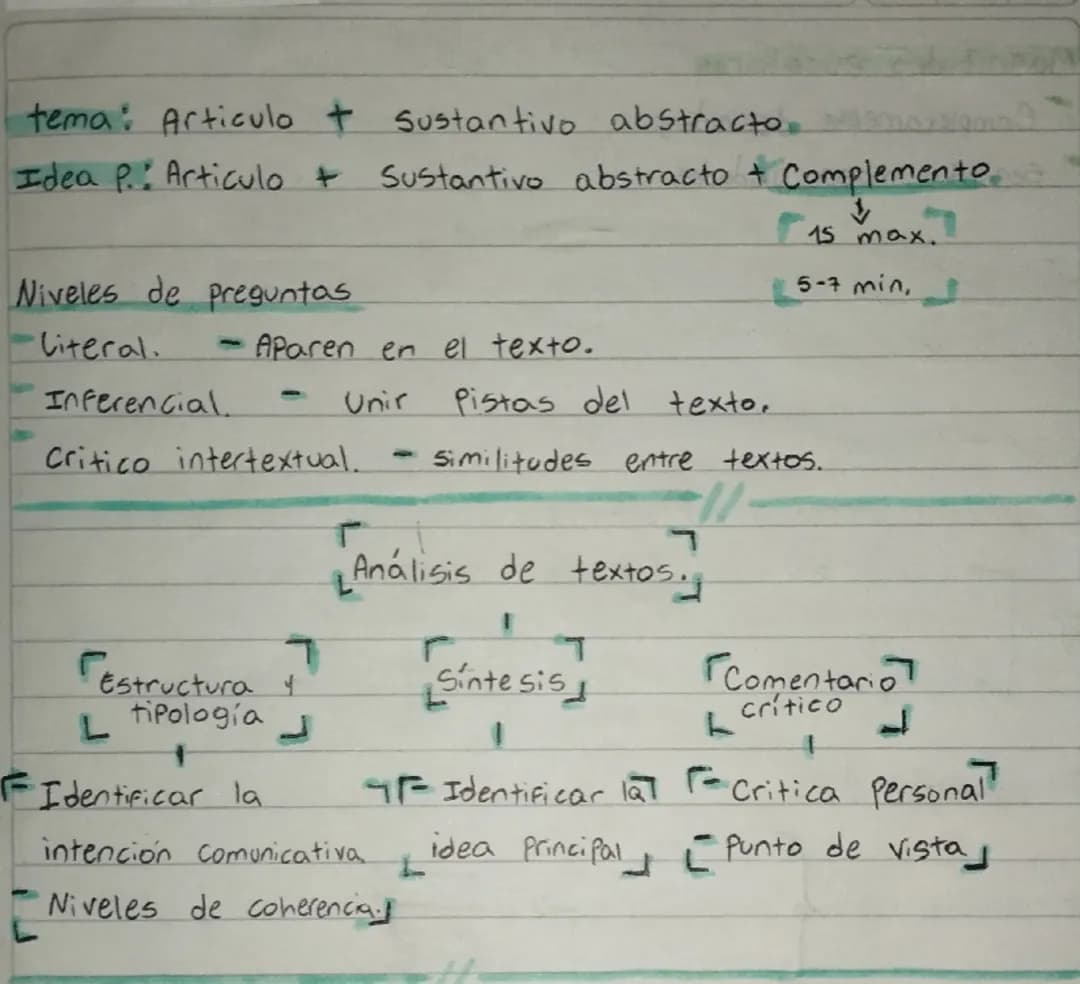 tema: Articulo + sustantivo abstracto.
Idea P.: Articulo + Sustantivo abstracto + Complemento.
15 max.
5-7 min.
Niveles de preguntas
- Literal. - Aparen en el texto.
- Inferencial. - Unir Pistas del texto.
- Critico intertextual. - similitudes entre textos.
Análisis de textos.
Estructura y
tipología
Síntesis
Comentario
crítico
- Identificar la
intención comunicativa
- Niveles de coherencia.
- Identificar la
idea principal
- Critica Personal
- Punto de vista